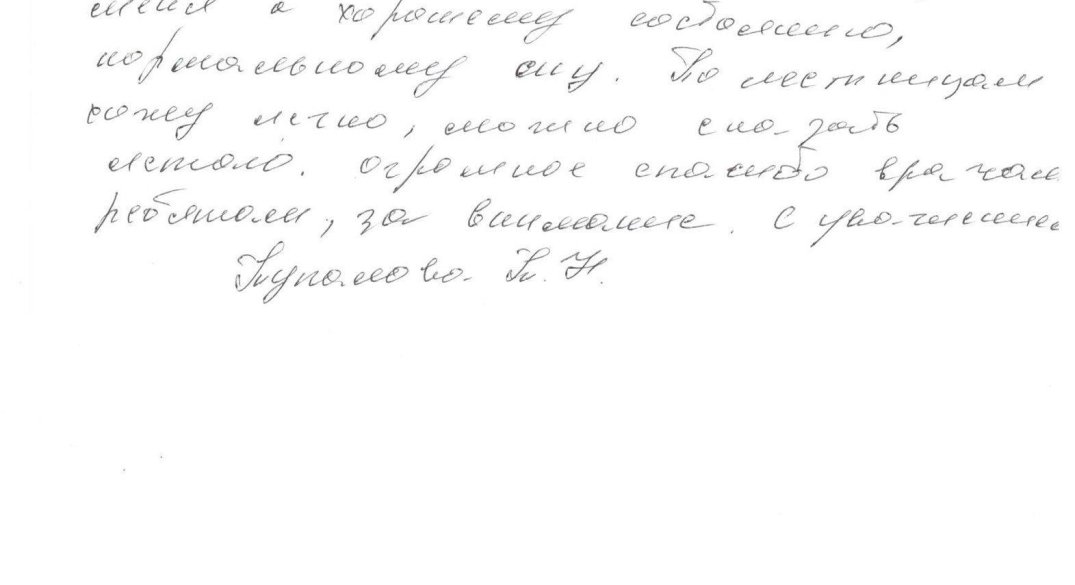 меня к хорошему состоянию,
нормальному сну. По лестницам
хожу легко, можно сказать
летаю. Огромное спасибо врачам
ребятам, за внимание. С уважением
Купалова К. Н.